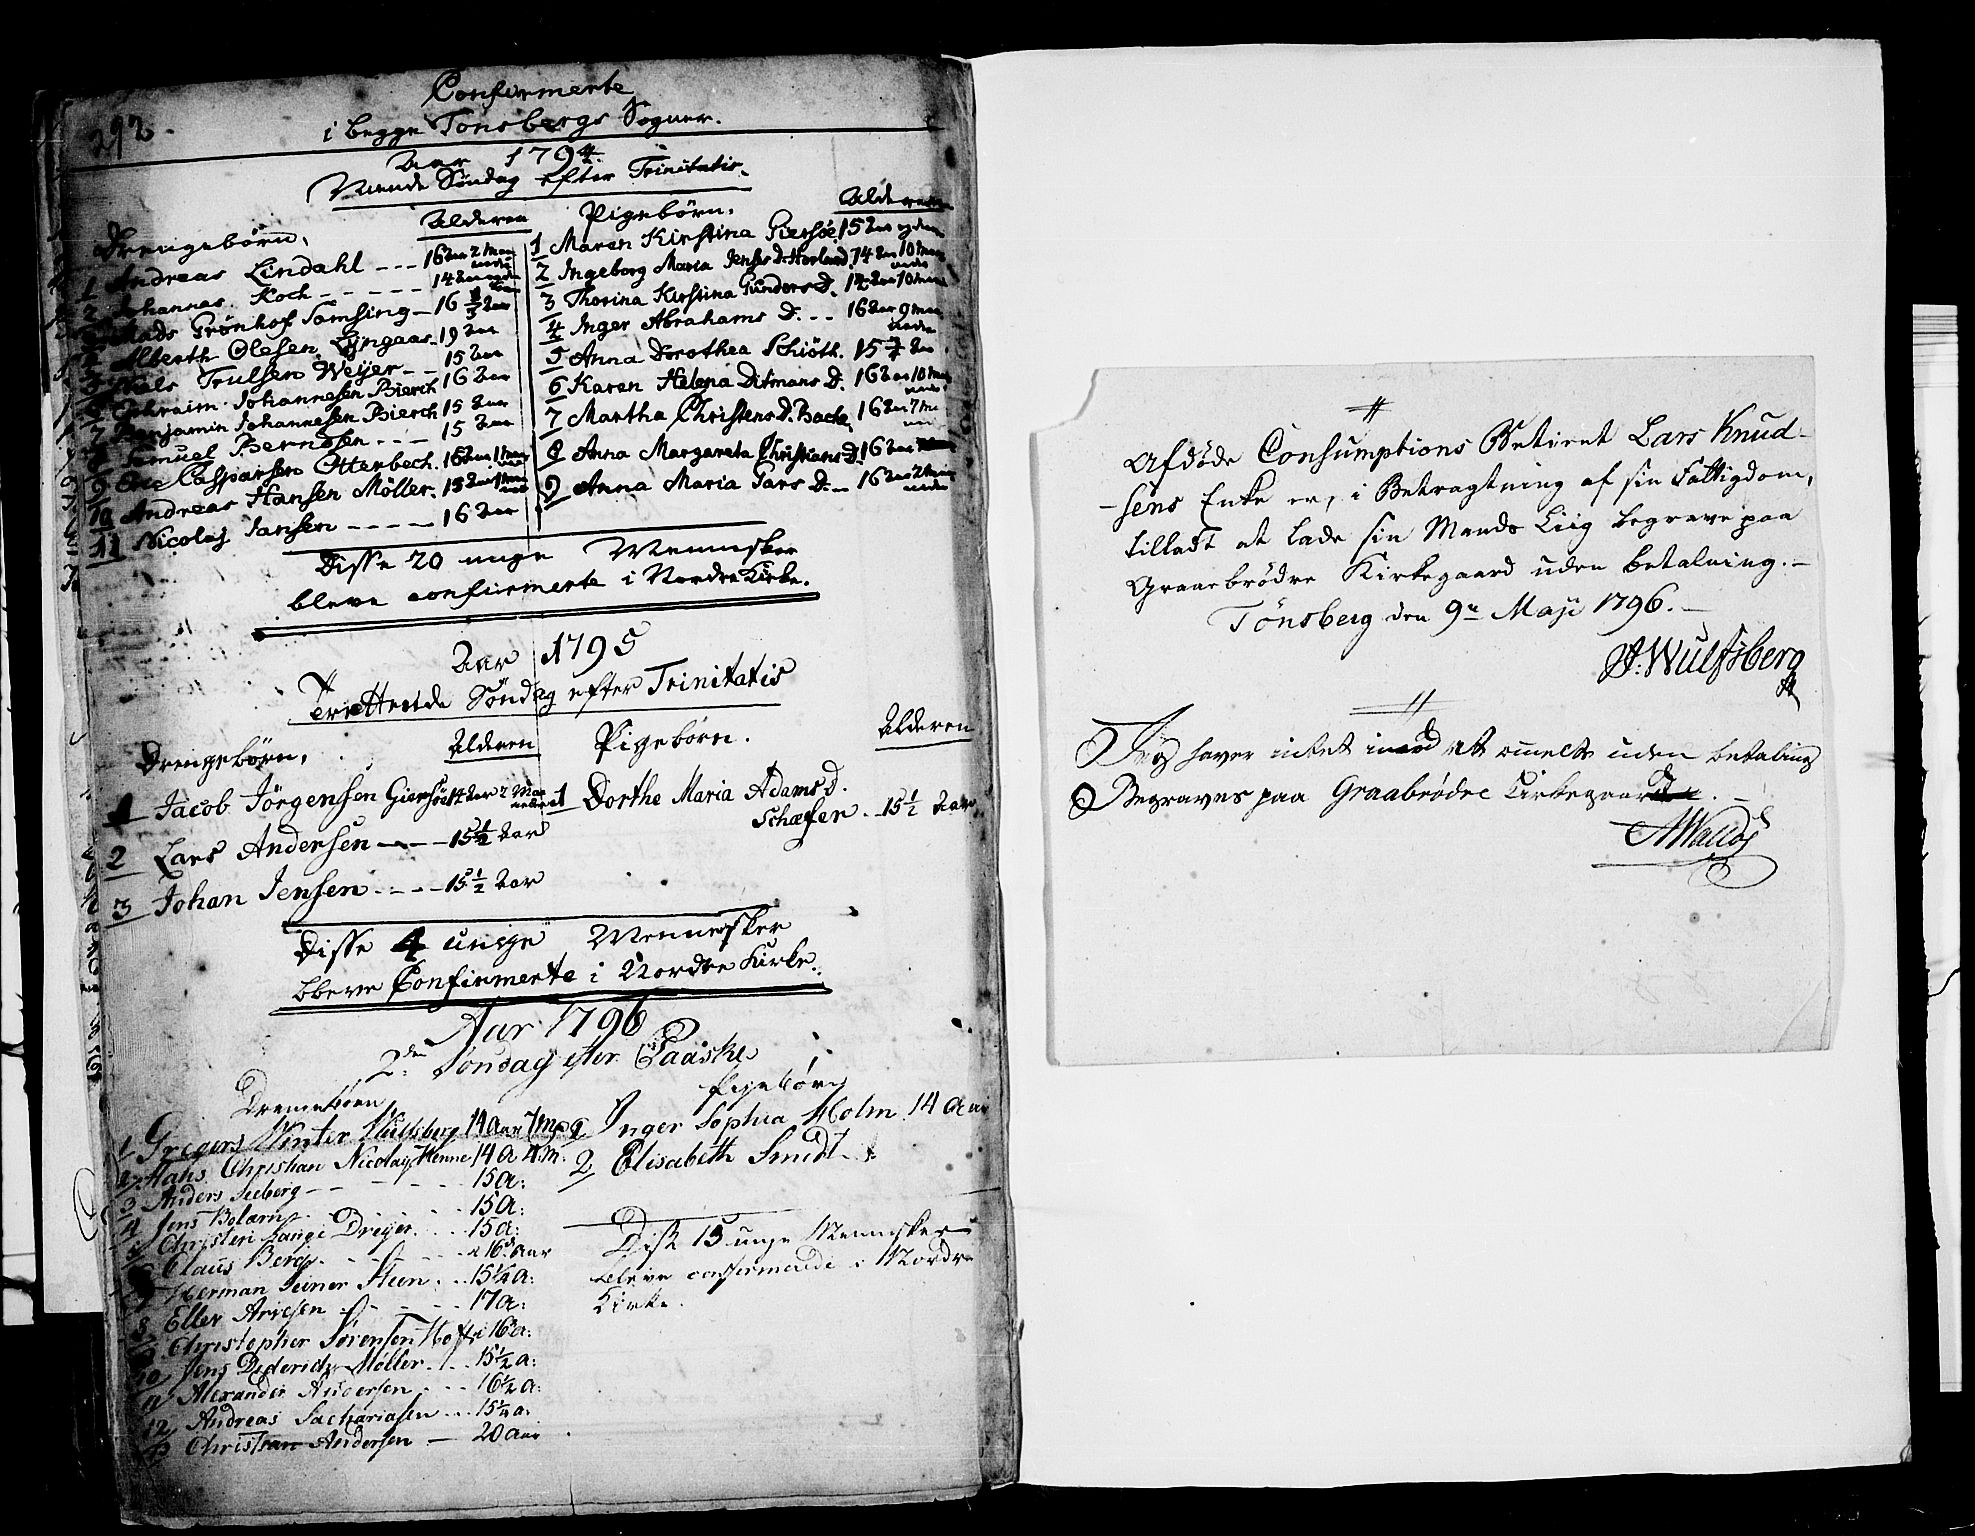 292.
Confirmerte
i begge Tonsbergs Sogner.
Aar 1794.
Niende Søndag efter Trinitatis.
Drengebörn, Alderen
1 Andreas Lindahl --- 16 Aar 2 Man
2 Johannes Koch ----- 14 Aar
Mads Grönhof Samsing - 16 1/2 Aar
Alberth Olesen Lÿngaas - 19 Aar
Niels Trulsen Weÿer -- 15 Aar
Ephraim Johannesen Bierch 16 Aar
Benjamin Johannesen Bierch 15 Aar
Samuel Berndsen --- 15 Aar
Ole Caspersen Otterbech. 15 Aar 1 Man
10 Andreas Hansen Möller. 15 Aar
11 Nicolaj Jansen ---- 16 Aar
Pigebörn. Alderen
1 Maren Kirstina Giersöe 15 Aar
2 Ingeborg Maria Jens D. 14 Aar 10 Man
3 Thorina Kirstina Gunders D. 14 Aar 10 Man
4 Inger Abrahams D. -- 16 Aar 9 Man
5 Anna Dorothea Schiöth. 15 3/4 Aar
6 Karen Helena Ditmans D. 16 Aar 10 Man
7 Martha Christens D. Bache 16 Aar 7 M
8 Anna Margareta Christians D. 16 Aar
9 Anna Maria Lars D. -- 16 Aar 2 Man
Disse 20 unge Mennisker
bleve confirmerte i Nordre Kirke.
Aar 1795
Trettende Søndag efter Trinitatis
Drengebörn, Alderen
1 Jacob Jörgensen Giersöe 14 Aar 2 Man
2 Lars Andersen --- 15 1/2 Aar
3 Johan Jensen ---- 15 1/2 Aar
Pigebörn. Alderen
1 Dorthe Maria Adams D.
Schæfer. - 15 1/2 Aar
Disse 4 unge Mennesker
bleve Confirmerte i Nordre Kirke.
Aar 1796
2den Søndag efter Paaske
Drengebörn
1 Gregers Winter Wulfsberg 14 Aar 7 m
2 Hans Christian Nicolaÿ Henne 14 A 4 m.
3 Anders Seeberg ------ 15 A:
4 Jens Bolærn ------ 15 A:
5 Christen Lange Dreÿer. --- 15 A:
Claus Berg. ------ 16 Aar
Herman Leiner Steen. -- 15 1/4 A:
8 Eller Ariesen ----- 17 A:
Christopher Sørensen Hoff 16 A:
10 Jens Diderich Møller. -- 15 1/2 A:
11 Alexander Andersen --- 16 1/2 A:
12 Andreas Sachariasen --- 15 1/4 A:
13 Christian Andersen -- 20 Aar
Pigebörn
1 Inger Sophia Holm 14 Aar
2 Elisabeth Smidt
Disse 15 unge Mennesker
bleve confirmerede i Nordre
Kirke.
Afdöde Consumptions Betient Lars Knud-
-sens Enke er, i Betragtning af sin Fattigdom,
tilladt at lade sin Mands Liig begrave paa
Graaebrödre Kirkegaard uden betalning.
Tönsberg den 9de Maji 1796.
J. Wulfsberg
Jeg haver intet imod at ommelte uden betaling
Begraves paa Graabrødre Kirkegaard.